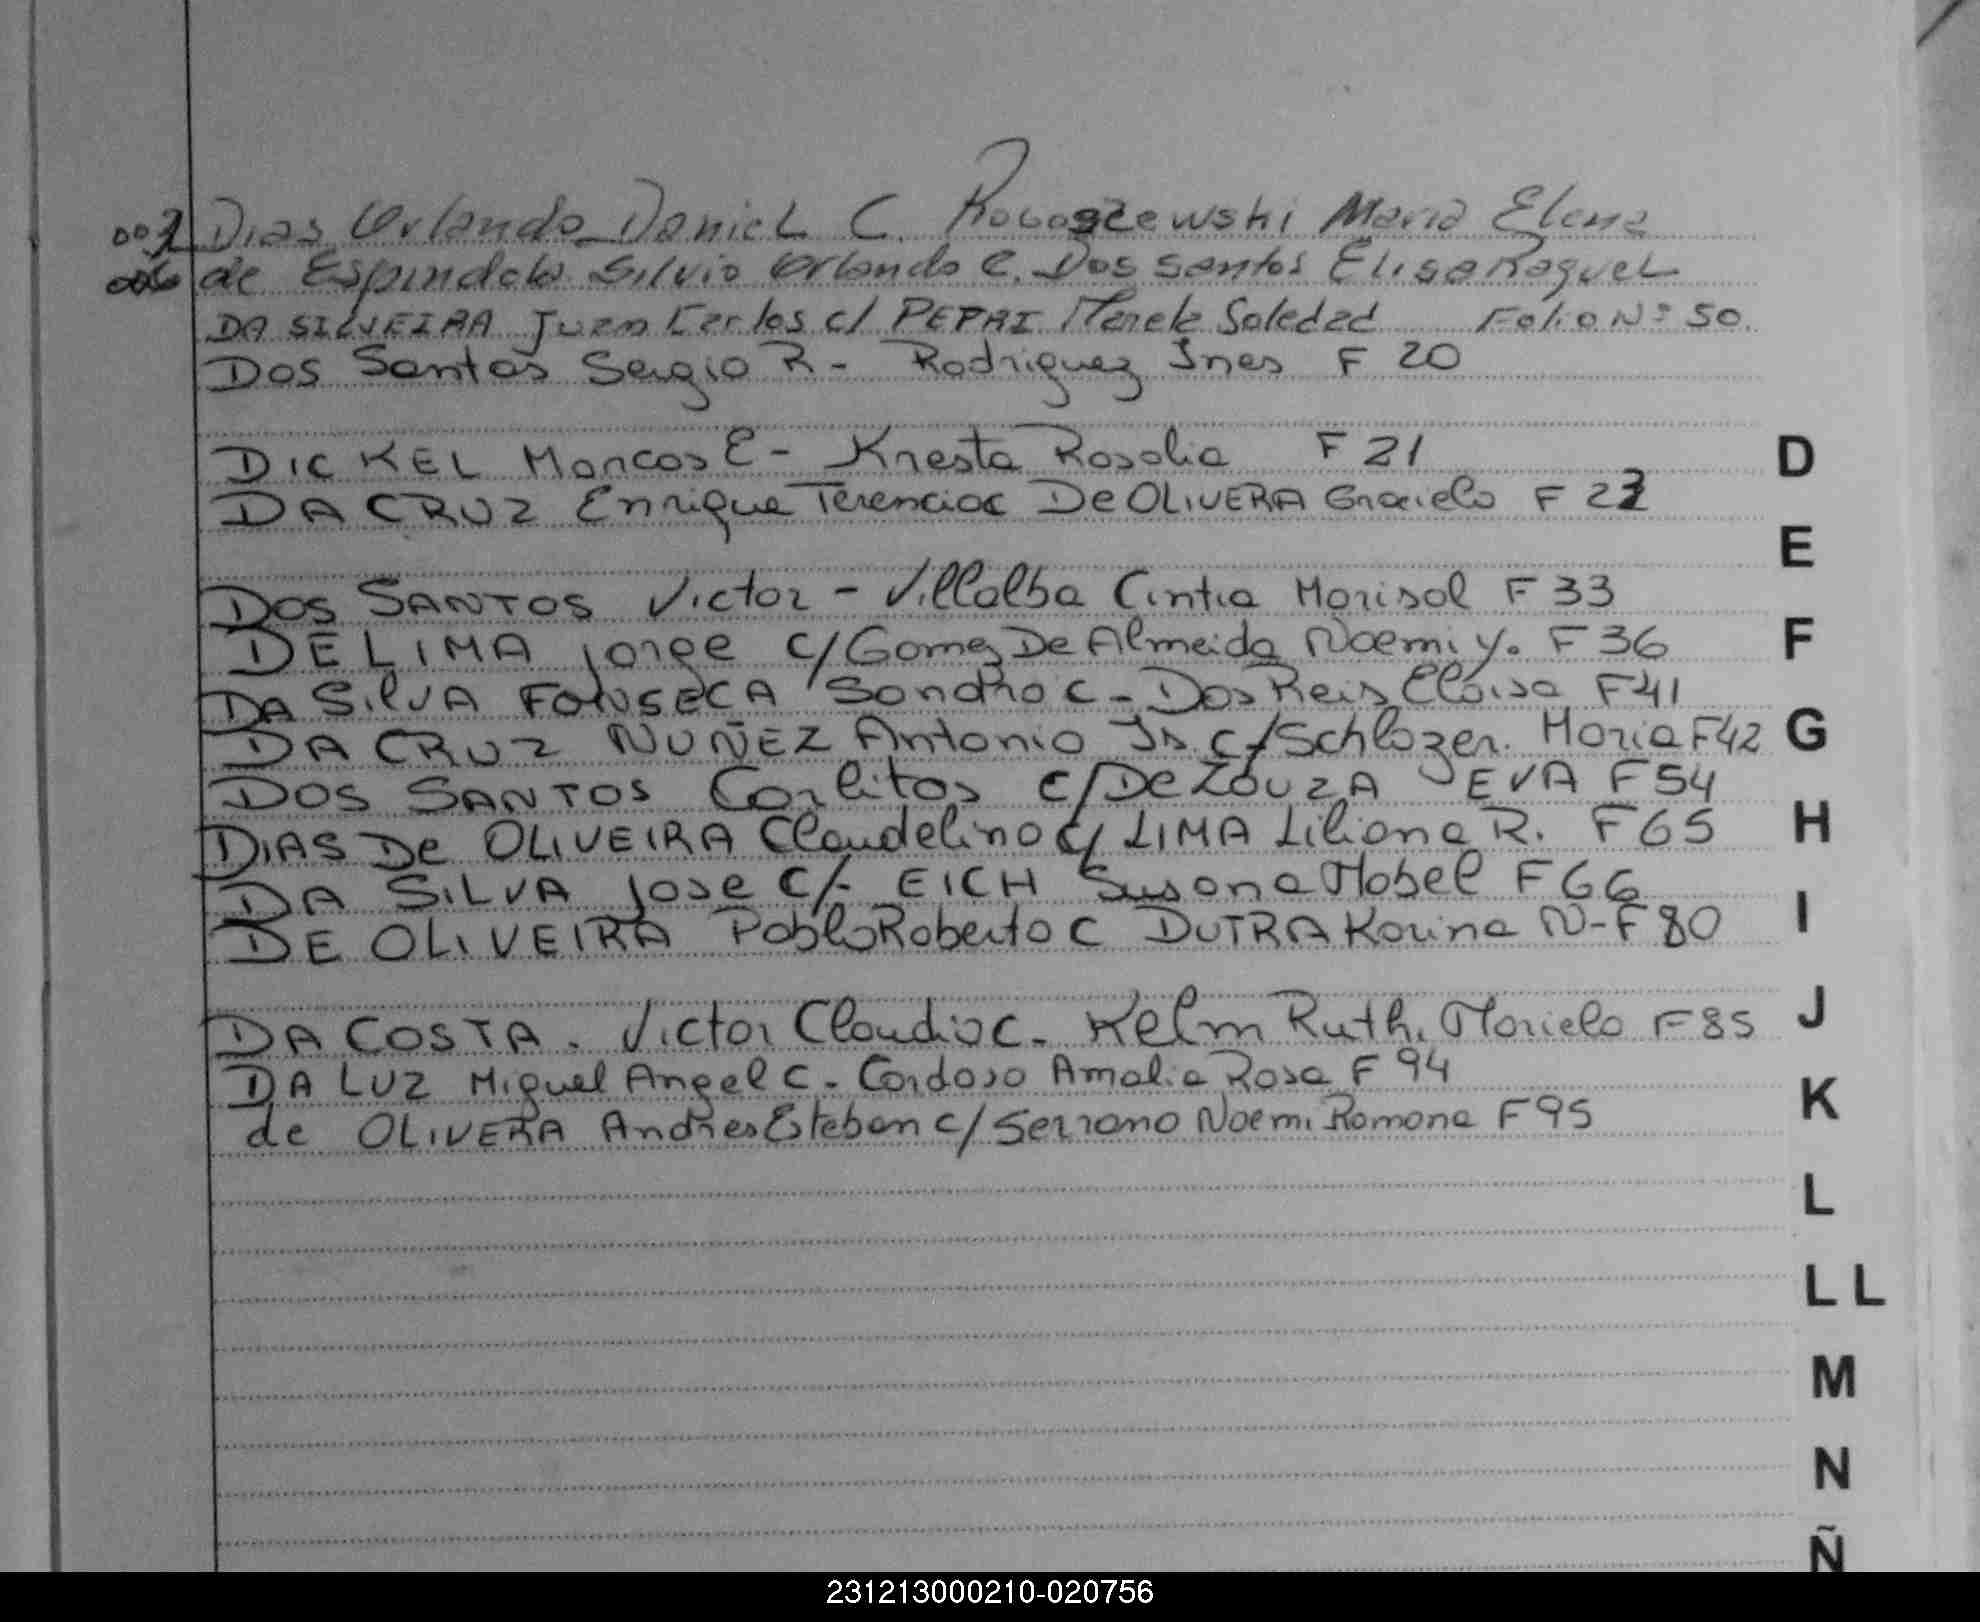 003 Dias Orlando Daniel C. Roboszewski Maria Elena
006 de Espindola Silvio Orlando C. Dos Santos Elisa Raquel
DA SILVEIRA Juan Carlos c/ Mariela Soledad Folio Nº 50
Dos Santos Sergio R - Rodriguez Ines F 20
DICKEL Marcos E - Kresta Rosalia F 21
DA CRUZ Enrique Terencio c De OLIVERA Graciela F 22
DOS SANTOS Victor - Villalba Cintia Marisol F 33
DE LIMA Jorge c/ Gomez De Almeida Noemi Y. F 36
DA SILVA FONSECA Sandro c - Dos Reis Eloisa F 41
DA CRUZ NUÑEZ Antonio Is. c/ Schlozer. Maria F 42
DOS SANTOS Carlitos c/ De ZOUZA EVA F 54
DIAS De OLIVEIRA Claudelino c/ LIMA Liliana R. F 65
DA SILVA Jose c/- EICH Susana Mabel F 66
DE OLIVEIRA Pablo Roberto c DUTRA Karina N - F 80
DA COSTA. Victor Claudio c - Kelm Ruth. Mariela F 85
DA LUZ Miguel Angel c - Cardoso Amalia Rosa F 94
de OLIVERA Andres Esteban c/ Serrano Noemi Ramona F 95
D
E
F
G
H
I
J
K
L
LL
M
N
Ñ
231213000210-020756